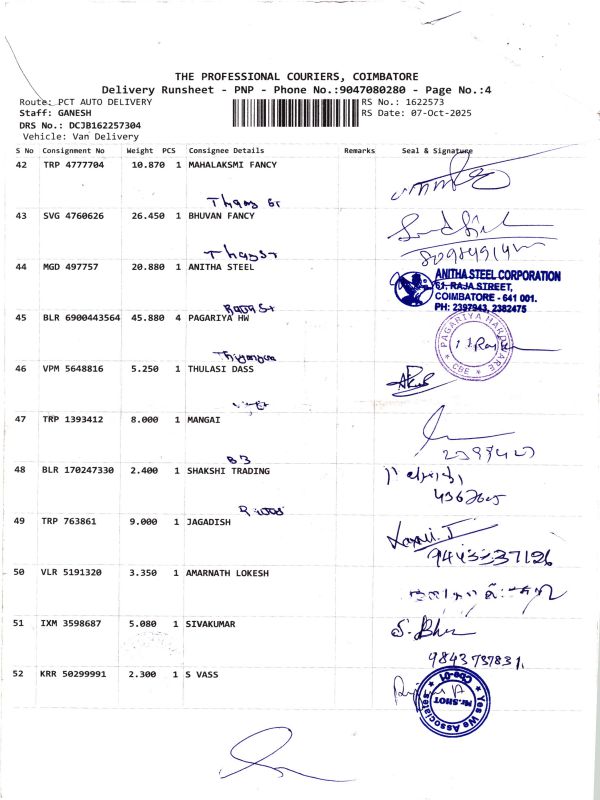 THE PROFESSIONAL COURIERS, COIMBATORE
Delivery Runsheet - PNP - Phone No.:9047080280 - Page No.:4
Route: PCT AUTO DELIVERY
RS No.: 1622573
Staff: GANESH
RS Date: 07-Oct-2025
DRS No.: DCJB162257304
Vehicle: Van Delivery
S No Consignment No Weight PCS Consignee Details Remarks Seal & Signature
42 TRP 4777704 10.870 1 MAHALAKSMI FANCY
43 SVG 4760626 26.450 1 BHUVAN FANCY
44 MGD 497757 20.880 1 ANITHA STEEL
ANITHA STEEL CORPORATION
61, RAJA STREET,
COIMBATORE - 641 001.
PH: 2397943, 2382475
45 BLR 6900443564 45.880 4 PAGARIYA HW
PAGARIYA HARDWARE
* CBE *
46 VPM 5648816 5.250 1 THULASI DASS
47 TRP 1393412 8.000 1 MANGAI
48 BLR 170247330 2.400 1 SHAKSHI TRADING
49 TRP 763861 9.000 1 JAGADISH
9443337126
50 VLR 5191320 3.350 1 AMARNATH LOKESH
51 IXM 3598687 5.080 1 SIVAKUMAR
9843737831.
52 KRR 50299991 2.300 1 S VASS
Yes We Associates
Mr.SHOT
Cbe-01